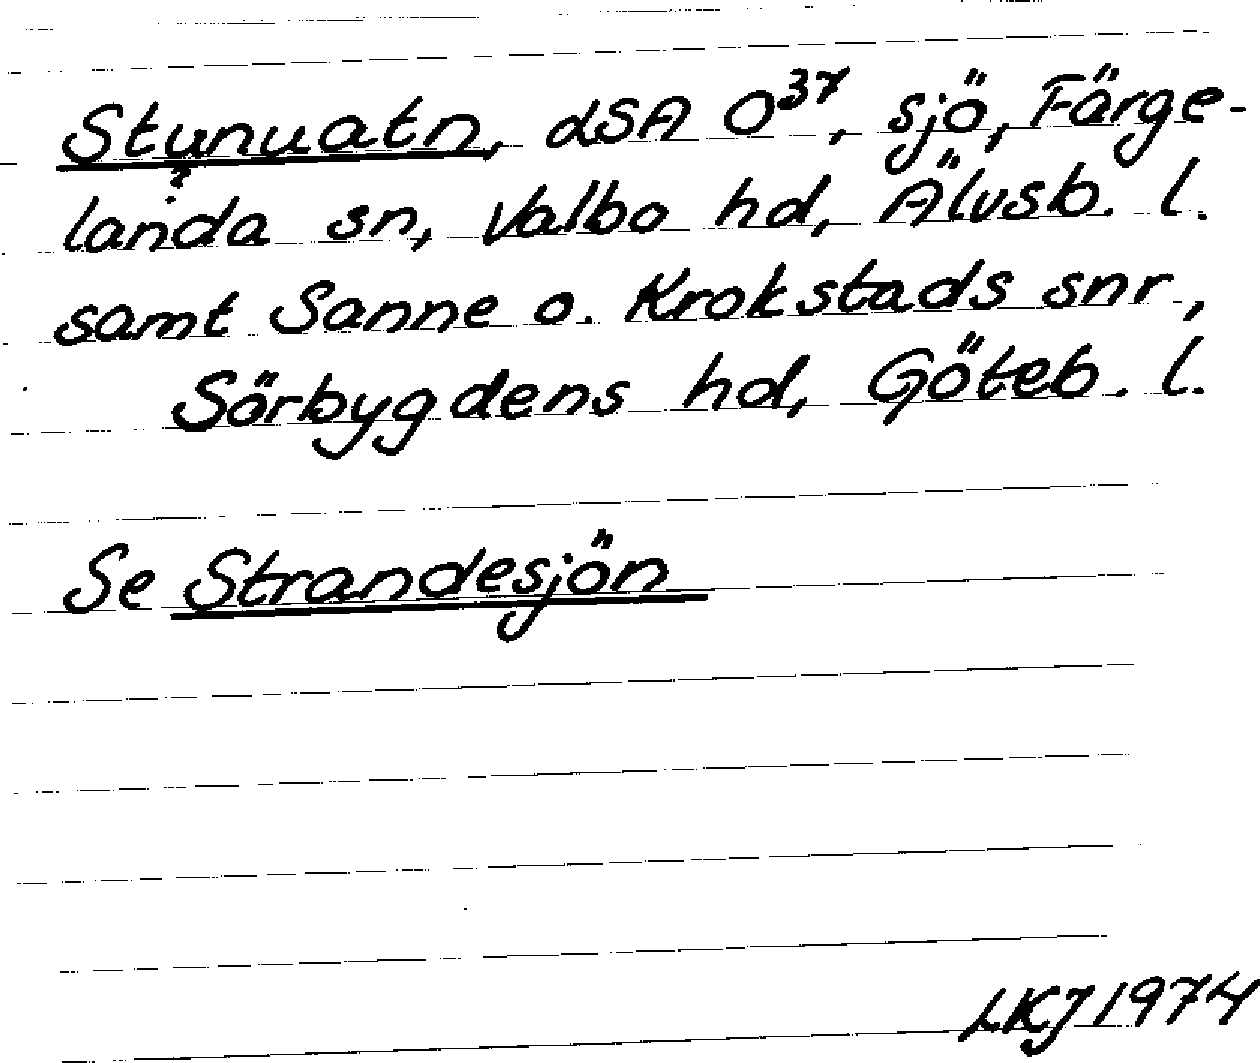 Stynuatn, dSA O³⁷, sjö, Färge-
?
landa sn, Valbo hd, Älvsb. l.
samt Sanne o. Krokstads snr,
Sörbygdens hd, Göteb. l.
Se Strandesjön
LKJ 1974